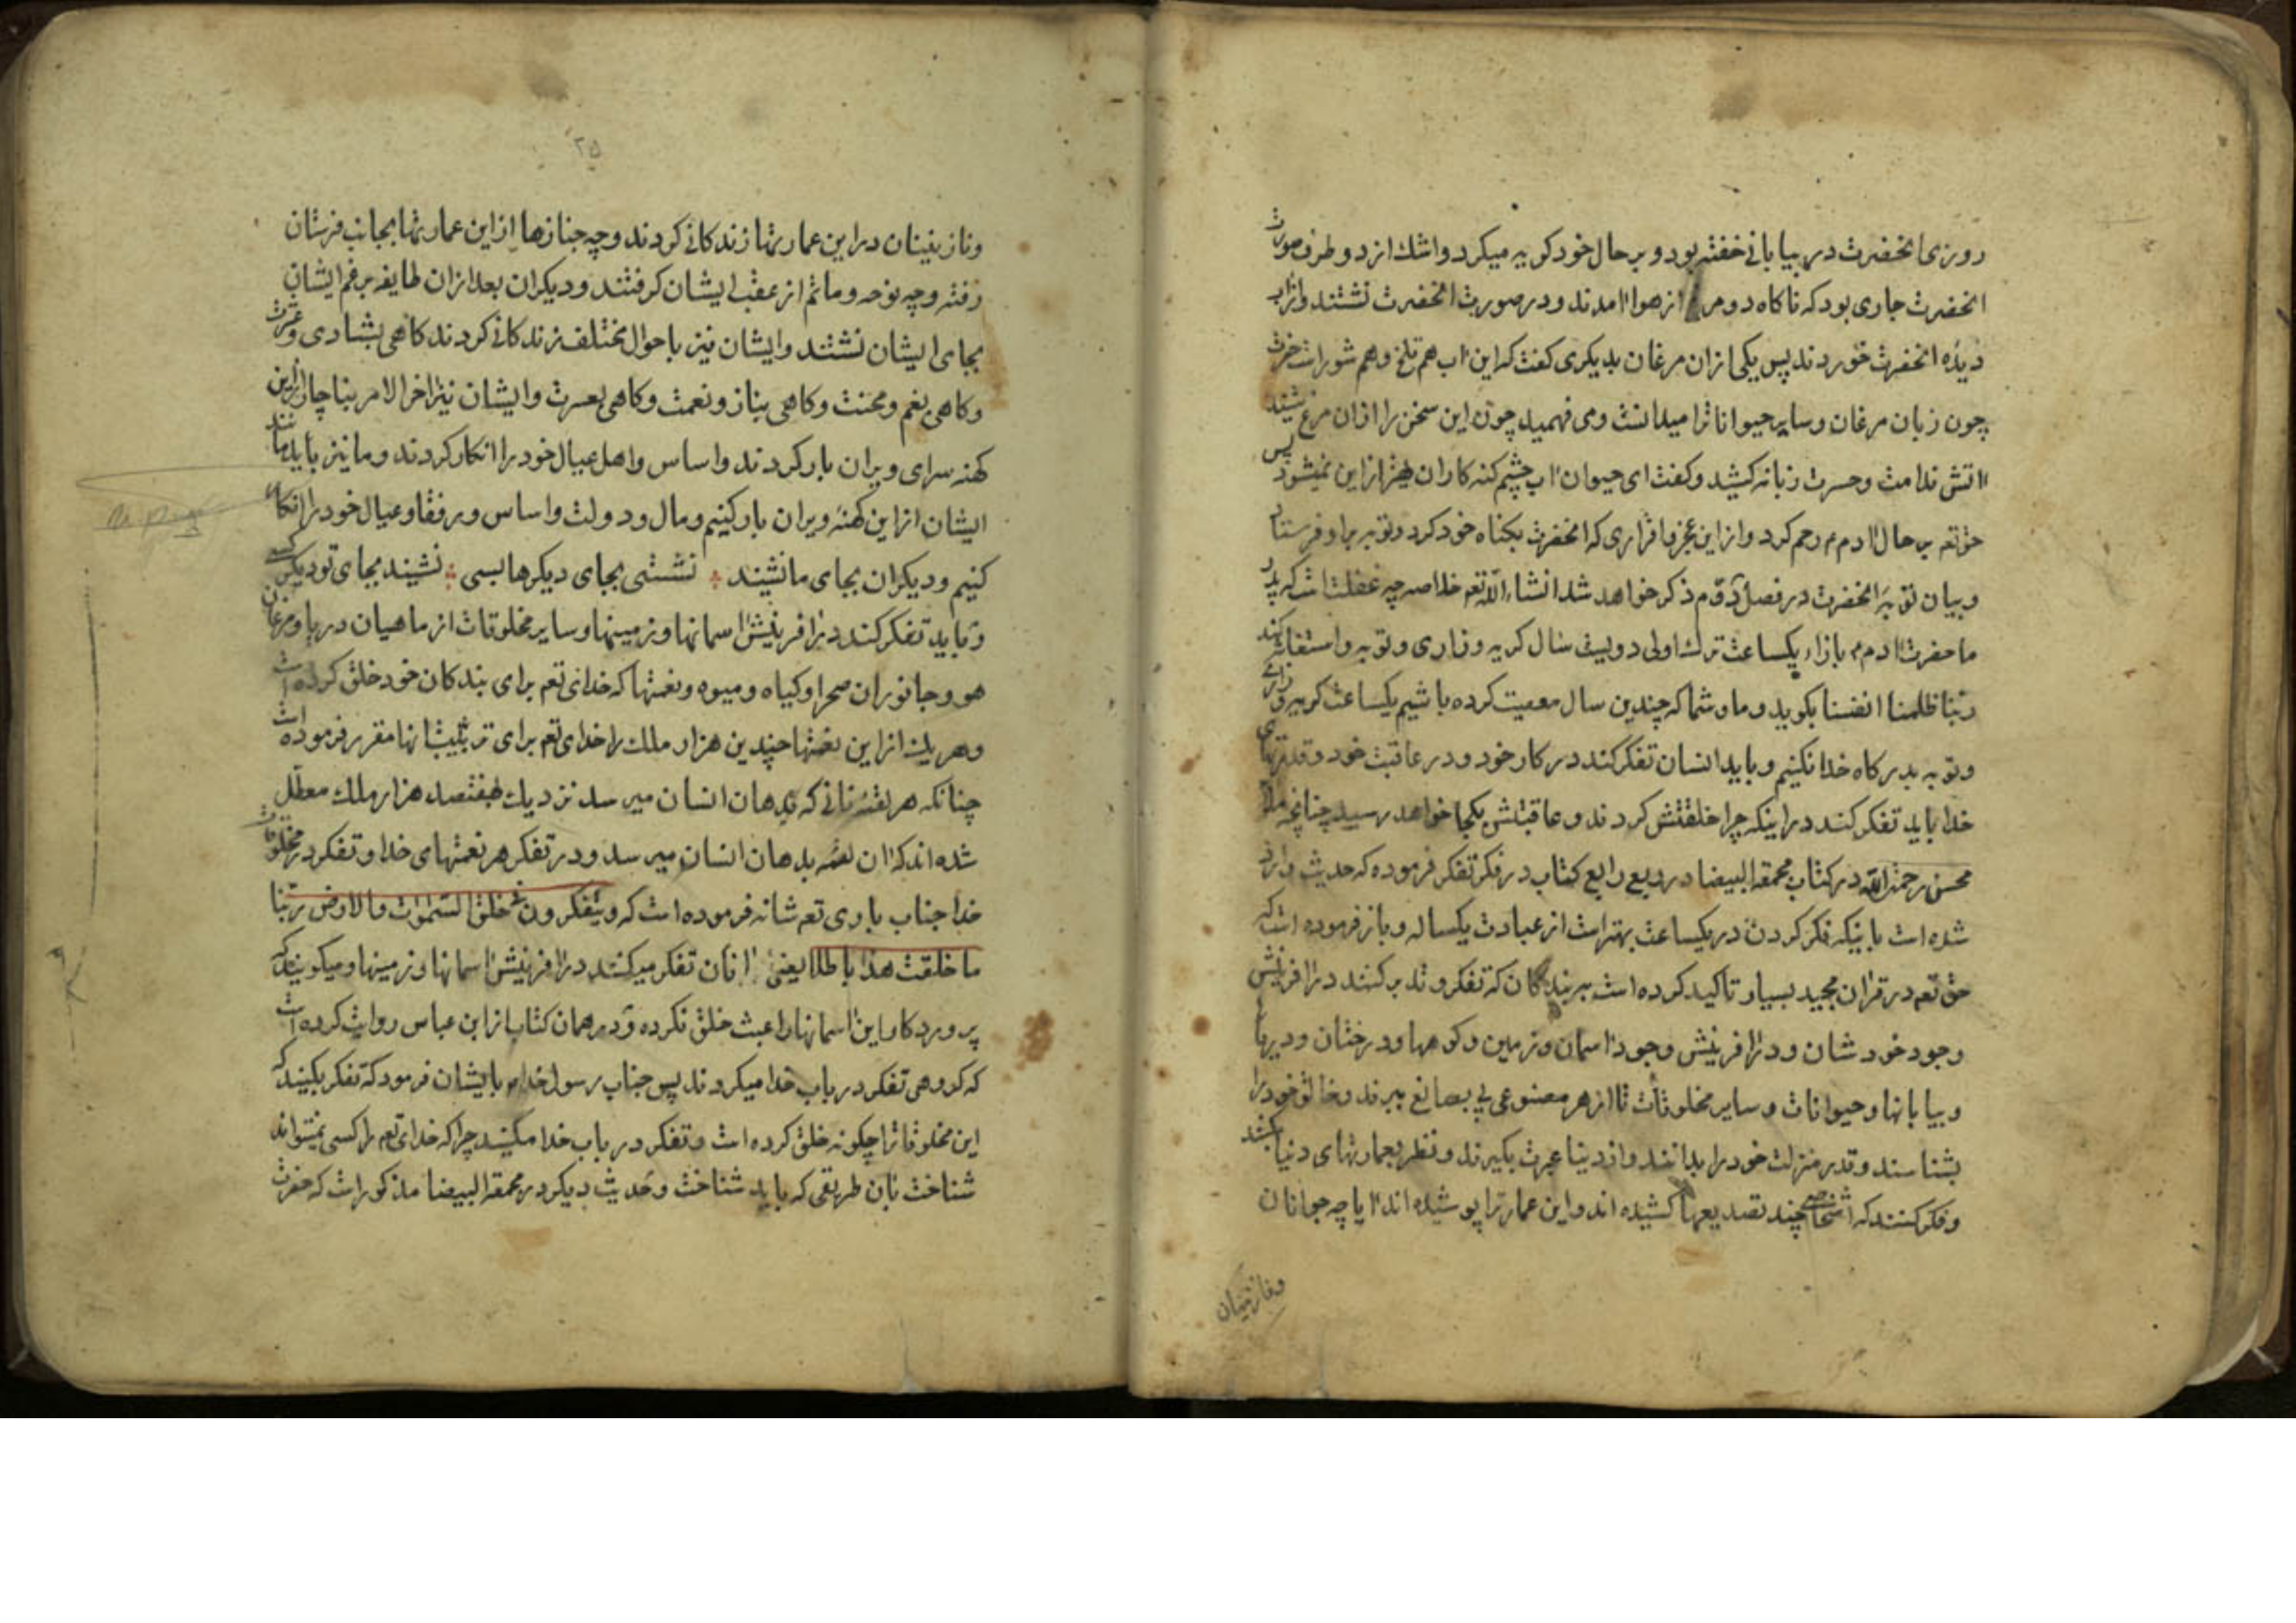 روزی انحضرت در بیابانی خفته بود و بر حال خود کریه میکرد و اشک از دو طرف صورت
انحضرت جاری بود که ناکاه دو مرغ از هوا امدند و در صورت انحضرت نشتند و از اب
دیده انحضرت خوردند پس یکی از ان مرغان بدیکری کفت که این اب هم تلخ و هم شور است حضرت
چون زبان مرغان و سایر حیواناترا میدانست و می فهمید چون این سخن را از ان مرغ شنید
اتش ندامت و حسرت زبانه کشید و کفت ای حیوان اب چشم کنه کاران بهتر از این نمیشود پس
حق تعم بر حال ادم م رحم کرد و از این عجز و اقراری که انحضرت بکناه خود کرد و توبه برا و فرستاد
و بیان توبهٔ انحضرت در فصل دوّم ذکر خواهد شد انشاء الله تعم خلاصه چه غفلت است که پدر
ما حضرت ادم م بازاء یکساعت ترک اولی دویست سال کریه و زاری و توبه و استغفار کند
ربنا ظلمنا انفسنا بکوید و ما و شما که چندین سال معصیت کرده باشیم یکساعت کریه و زاری
و توبه بدرکاه خدا نکنیم و باید انسان تفکر کند در کار خود و در عاقبت خود و قدرتهای
خدا باید تفکر کند در اینکه چرا خلقتش کردند و عاقبتش بکجا خواهد رسید چنانچه ملا
محسن رحمة الله در کتاب محجة البیضا در ربع رابع کتاب در فکر تفکر فرموده که حدیث وارد
شده است باینکه فکر کردن در یکساعت بهتر است از عبادت یکساله و باز فرموده است که
حق تعم در قران مجید بسیار تاکید کرده است ببر بندکان که تفکر و تدبر کنند در افرینش
وجود خودشان و در افرینش وجود اسمان و زمین و کوهها و درختان و دریاها
و بیابانها و حیوانات و سایر مخلوقات تا از هر مصنوعی پی بصانع ببرند و خالق خود را
بشناسند و قدر منزلت خود را بدانند و از دنیا عبرت بکیرند و نظر بعمارتهای دنیا کنند
و فکر کنند که اشخاص چند تصدیعها کشیده اند و این عمارترا پوشیده اند ایا چه جوانان
و نازنینان
۲۵
و نازنینان در این عمارتها زندکانی کردند و چه جنازها از این عمارتها بجانب قبرستان
رفته و چه نوحه و ماتم از عقب ایشان کرفتند و دیکران بعد از ان طایفه برغم ایشان
بجای ایشان نشتند و ایشان نیز باحوال مختلف زندکانی کردند کاهی بشادی و عشرت
و کاهی بغم و محنت و کاهی بناز و نعمت و کاهی بعسرت و ایشان نیز اخر الامر بناچار از این
کهنه سرای ویران بار کردند و اساس و اهل عیال خود را انکار کردند و ما نیز باید مانند
ایشان از این کهنهٔ ویران بار کنیم و مال و دولت و اساس و رفقا و عیال خود را انکار
کنیم و دیکران بجای ما نشیند نشستی بجای دیکرها بسی نشیند بجای تو دیکر کسی
و باید تفکر کند در افرینش اسمانها و زمینها و سایر مخلوقات از ماهیان دریا و مرغان
هوو جانوران صحرا و کیاه و میوه و نعمتها که خدای تعم برای بندکان خود خلق کرده است
و هر یک از این نعمتها چندین هزار ملک را خدای تعم برای تربیت انها مقرر فرموده است
چنانکه هر لقمهٔ نانی که بدهان انسان میرسد نزدیک هفتصد هزار ملک معطّل
شده اند که ان لقمه بدهان انسان میرسد و در تفکر هر نعمتهای خدا و تفکر در مخلوقات
خدا جناب باری تعم شانه فرموده است که و یتفکرون فی خلق السموات و الارض ربنا
ما خلقت هذا باطلا یعنی انان تفکر میکنند در افرینش اسمانها و زمینها و میکویند که
پروردکارا این اسمانها را عبث خلق نکرده و در همان کتاب از ابن عباس روایت کرده است
که کروهی تفکر در باب خدا میکردند پس جناب رسول خدا م بایشان فرمود که تفکر بکنید که
این مخلوقاترا چکونه خلق کرده است و تفکر در باب خدا مکنید چرا که خدای تعم را کسی نمیتواند
شناخت بان طریقی که باید شناخت و حدیث دیکر در محجة البیضا مذکور است که حضرت